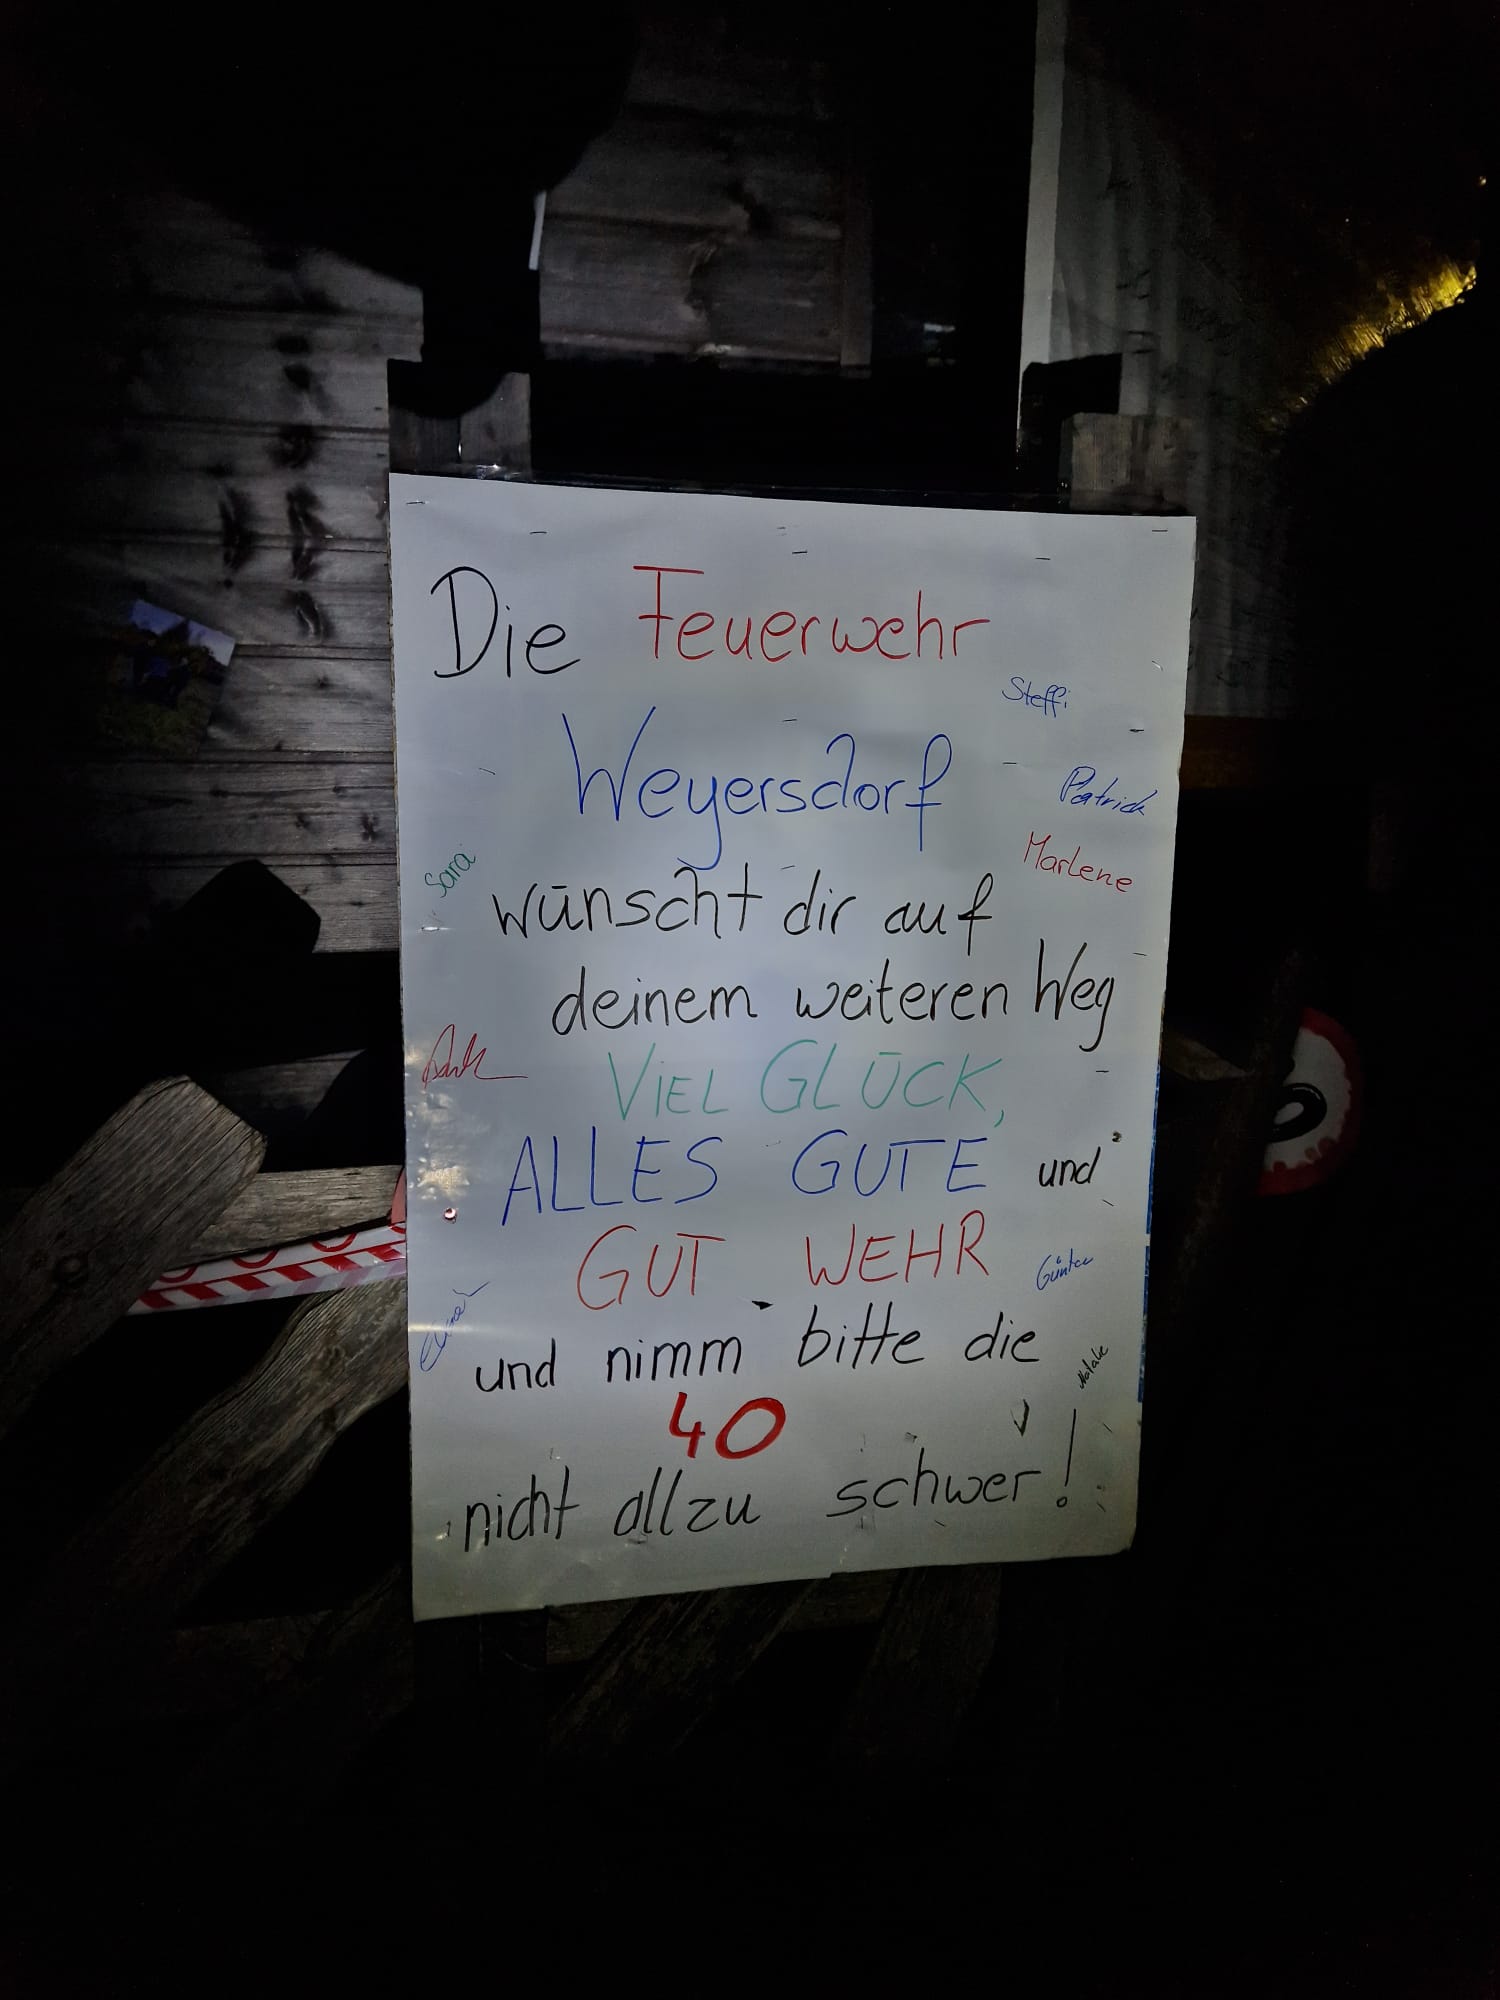 Die Feuerwehr
Steffi
Weyersdorf
Patrick
Marlene
Sara
wünscht dir auf
deinem weiteren Weg
VIEL GLÜCK,
ALLES GUTE und
GUT WEHR
Günter
und nimm bitte die
Natalie
40
nicht allzu schwer!